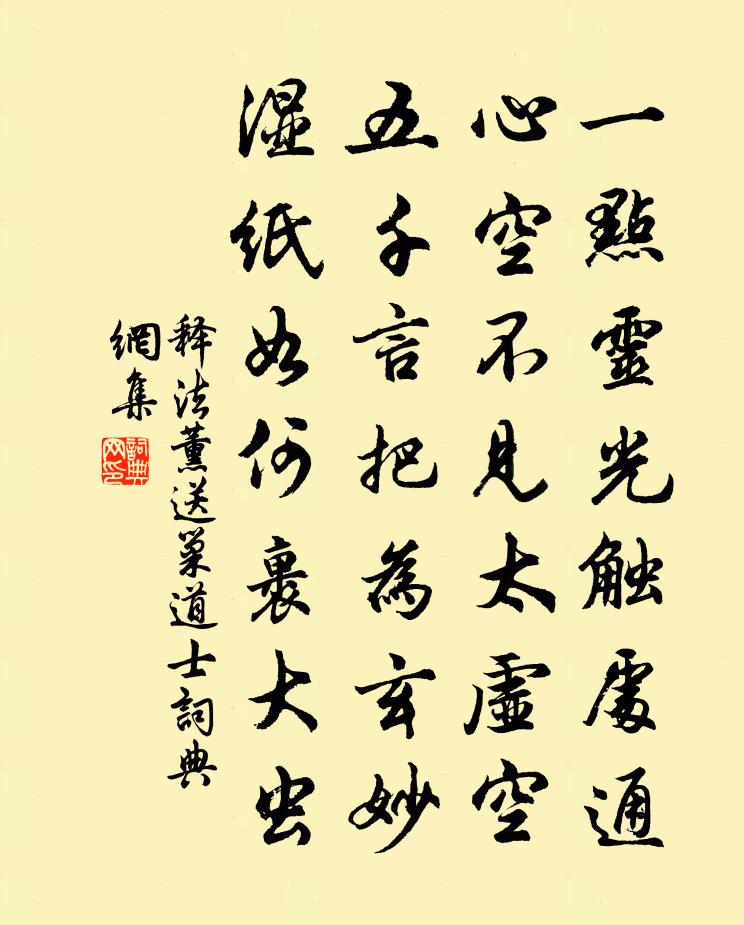 一點靈光触處通
心空不見太虛空
五千言把為玄妙
湿紙如何裹大虫
释法薰送巢道士詞典
網集
詞典
网印